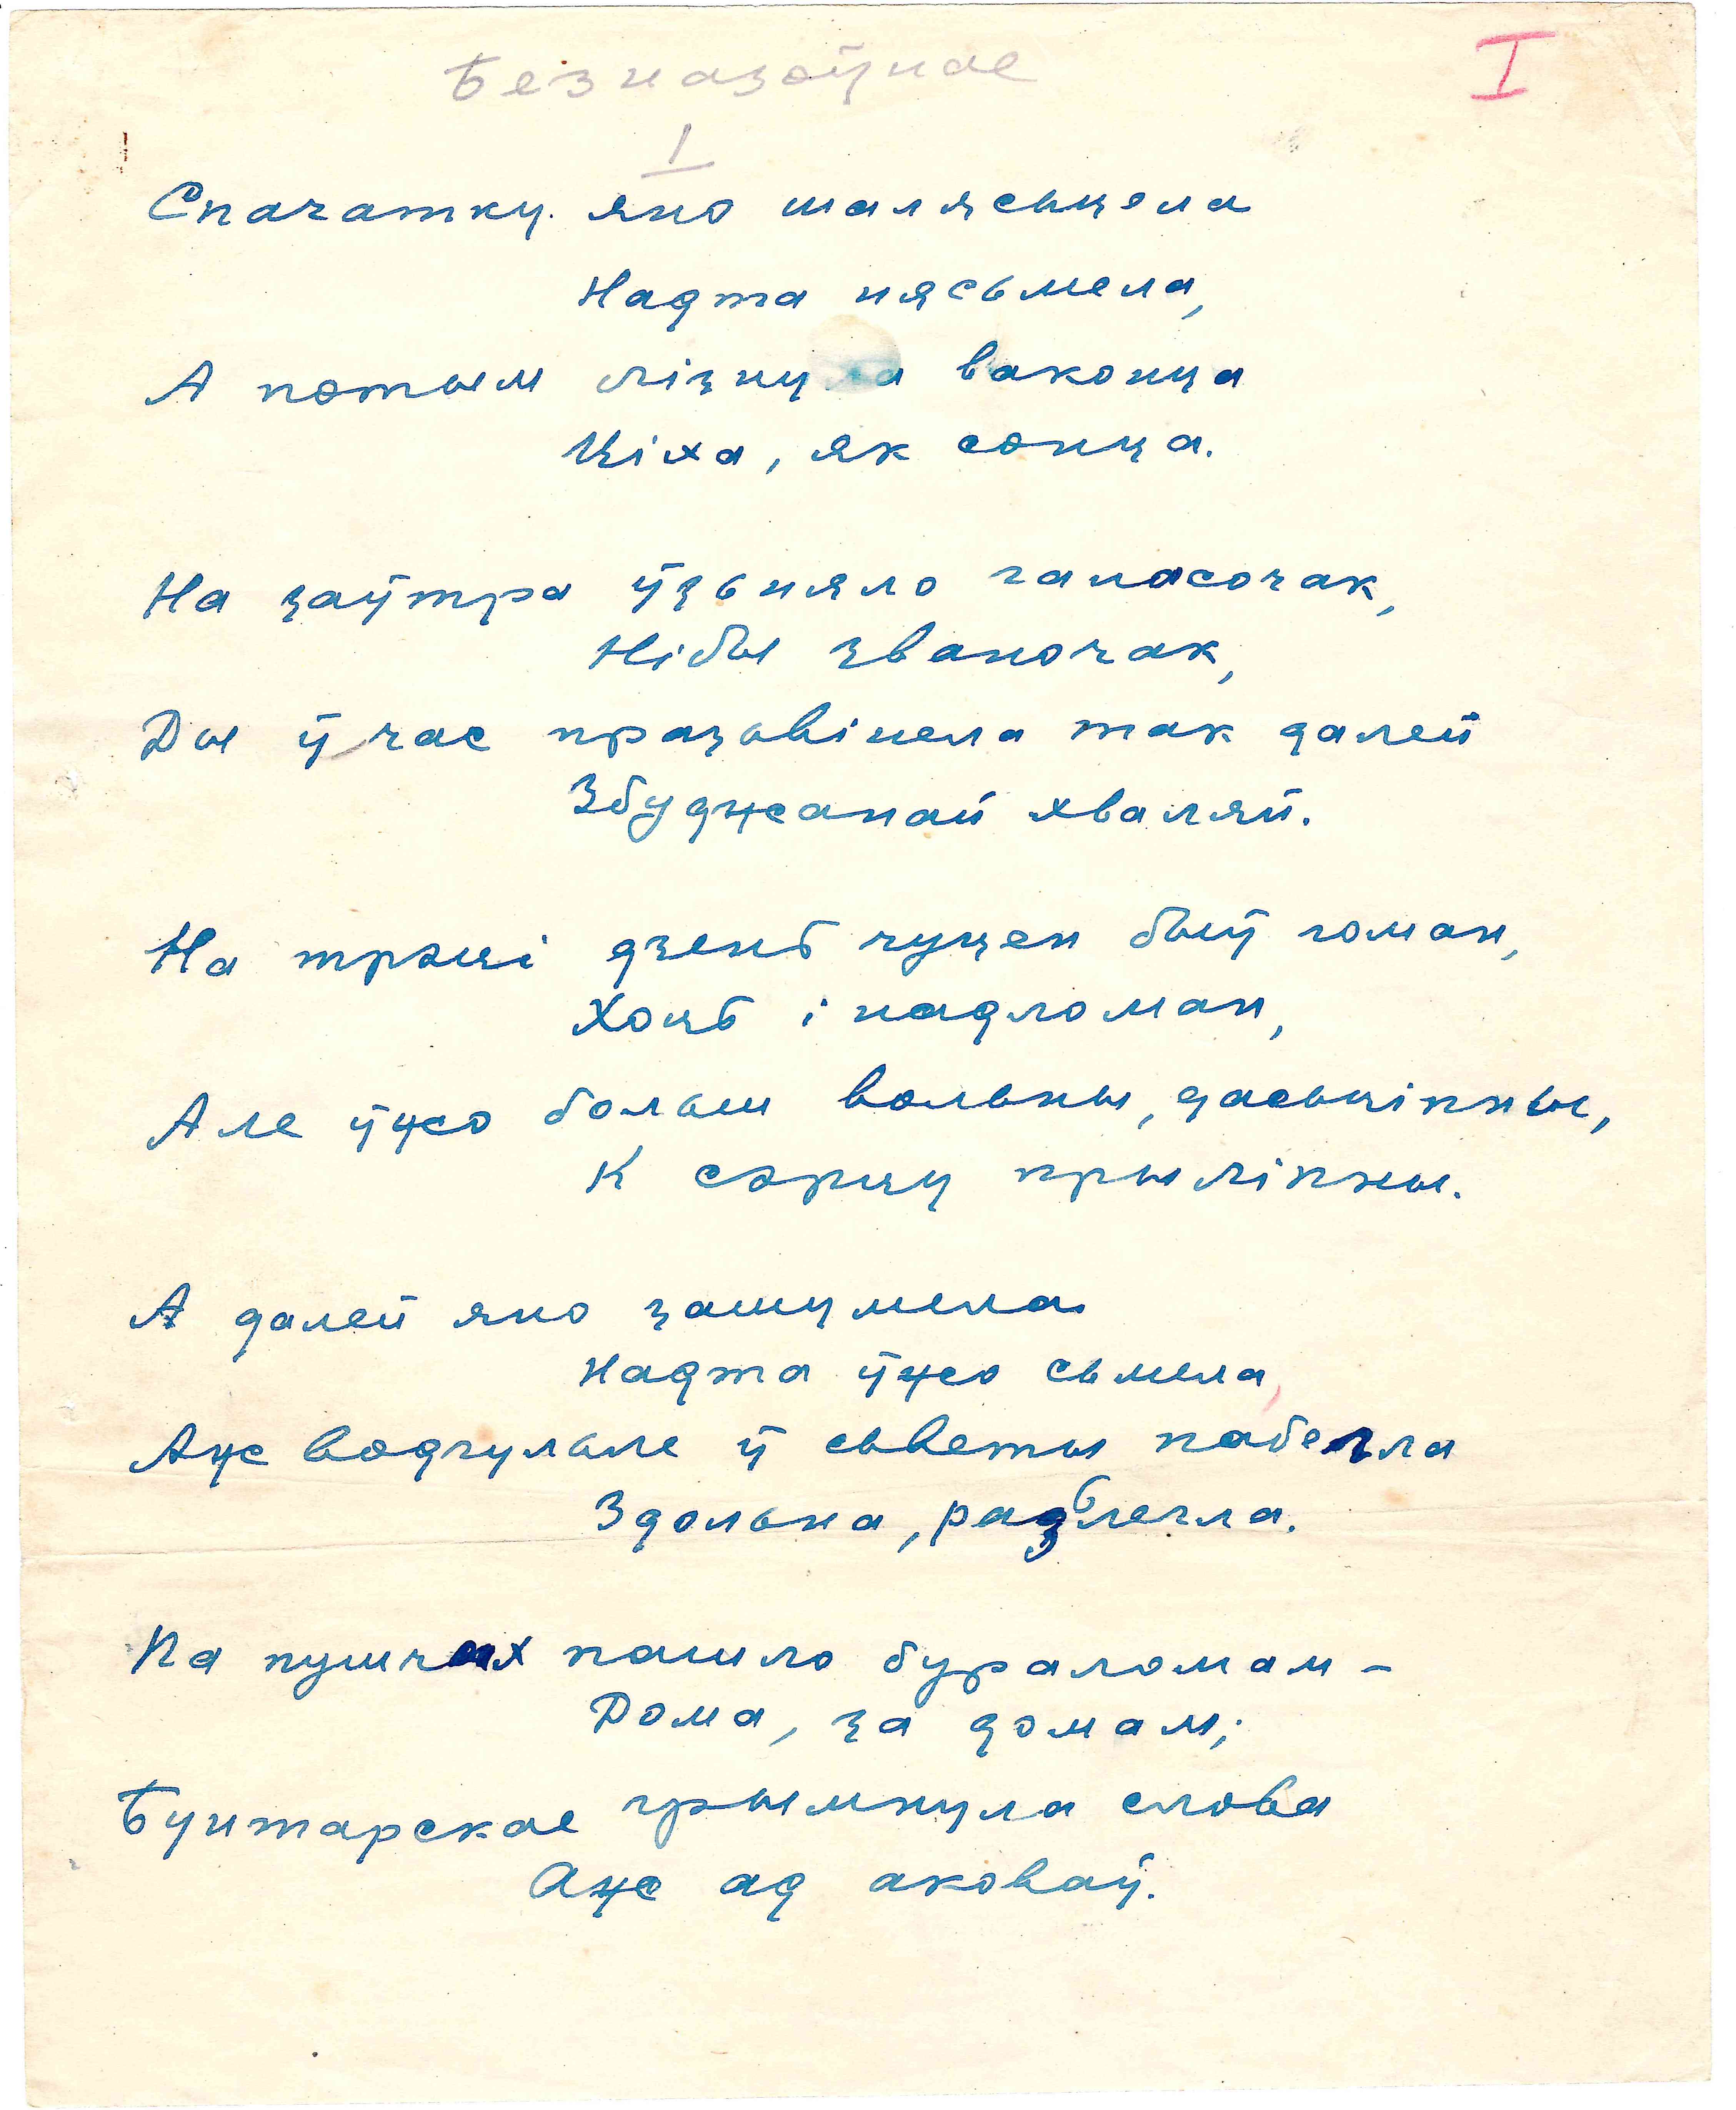 Безназоўнае
I
1
Спачатку яно шалясьцела
Надта нясьмела,
А потым лізнула ваконца
Ціха, як сонца.
На заўтра ўзьняло галасочак,
Нібы званочак,
Ды ў час празьвінела так далей
Збуджанай хваляй.
На трэці дзень чуцен быў гоман,
Хоць і надломан,
Але ўжо больш вольны, дасьціпны,
К сэрцу прыліпны.
А далей яно зашумела
Надта ўжо сьмела,
Аж водгульле ў сьветы пабегла
Здольна, разьлегла.
Па пушчах пашло бураломам –
Дома, за домам;
Бунтарскае грымнула слова
Аж ад аковаў.